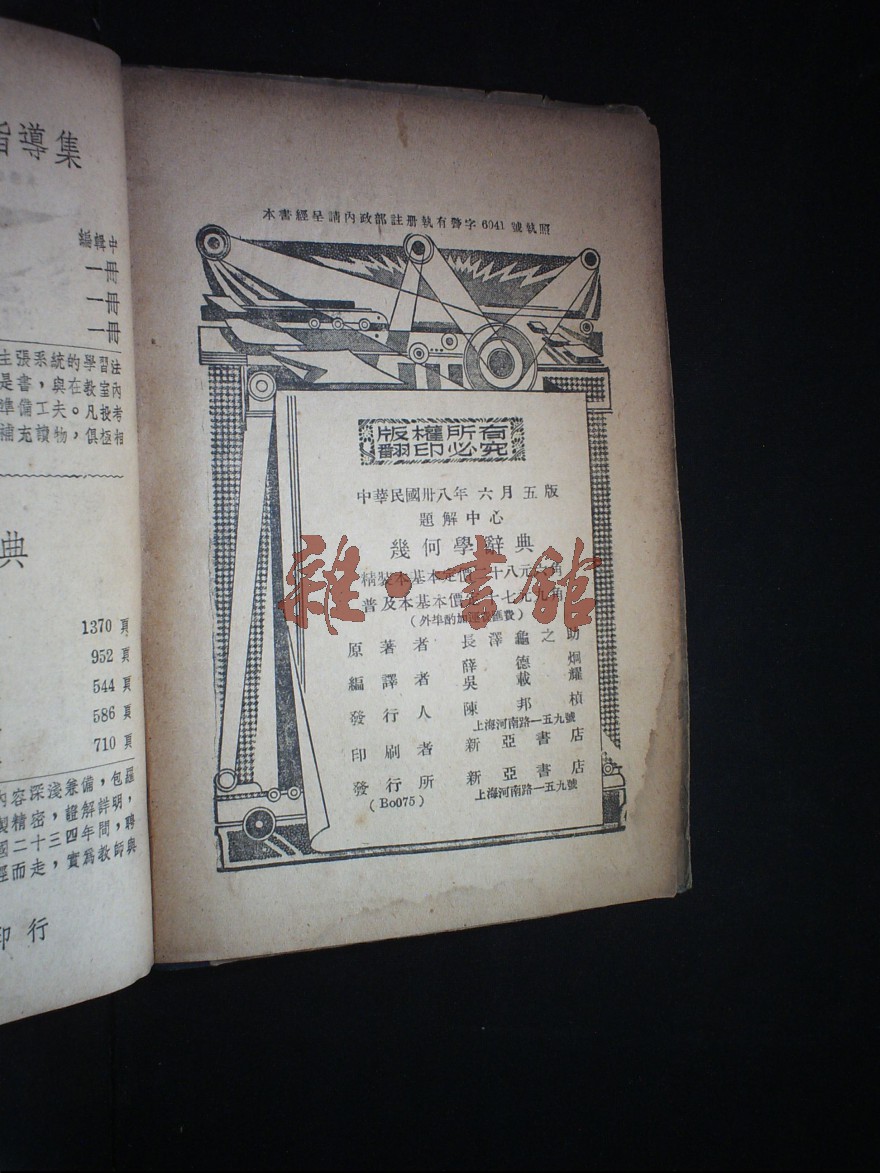 指導集
編輯中
一冊
一冊
一冊
主張系統的學習注
是書，與在教室內
準備工夫。凡投考
補充讀物，俱極相
典
1370 頁
952 頁
544 頁
586 頁
710 頁
內容深淺兼備，包羅
製精密，證解詳明，
國二十三四年間，聘
脛而走，實爲教師與
印行
本書經呈請內政部註册執有警字 6041 號執照
版權所有
翻印必究
中華民國卅八年 六月五版
題解中心
幾何學辭典
精裝本基本定價二十八元 角
普及本基本價定 十七元九角
(外埠酌加運 匯費)
原著者 長澤龜之助
編譯者 薛德炯 吳載耀
發行人 陳邦楨
上海河南路一五九號
印刷者 新亞書店
發行所 新亞書店
(Bo075) 上海河南路一五九號
雜·書館